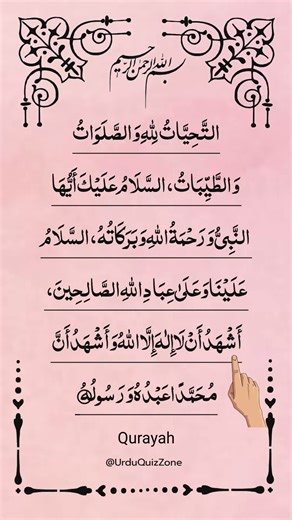 بسم الله الرحمن الرحيم
التَّحِيَّاتُ لِلَّهِ وَالصَّلَوَاتُ
وَالطَّيِّبَاتُ، السَّلَامُ عَلَيْكَ أَيُّهَا
النَّبِيُّ وَرَحْمَةُ اللهِ وَبَرَكَاتُهُ، السَّلَامُ
عَلَيْنَا وَعَلَىٰ عِبَادِ اللهِ الصَّالِحِينَ،
أَشْهَدُ أَنْ لَا إِلٰهَ إِلَّا اللهُ وَأَشْهَدُ أَنَّ
مُحَمَّدًا عَبْدُهُ وَرَسُولُهُ
Qurayah
@UrduQuizZone